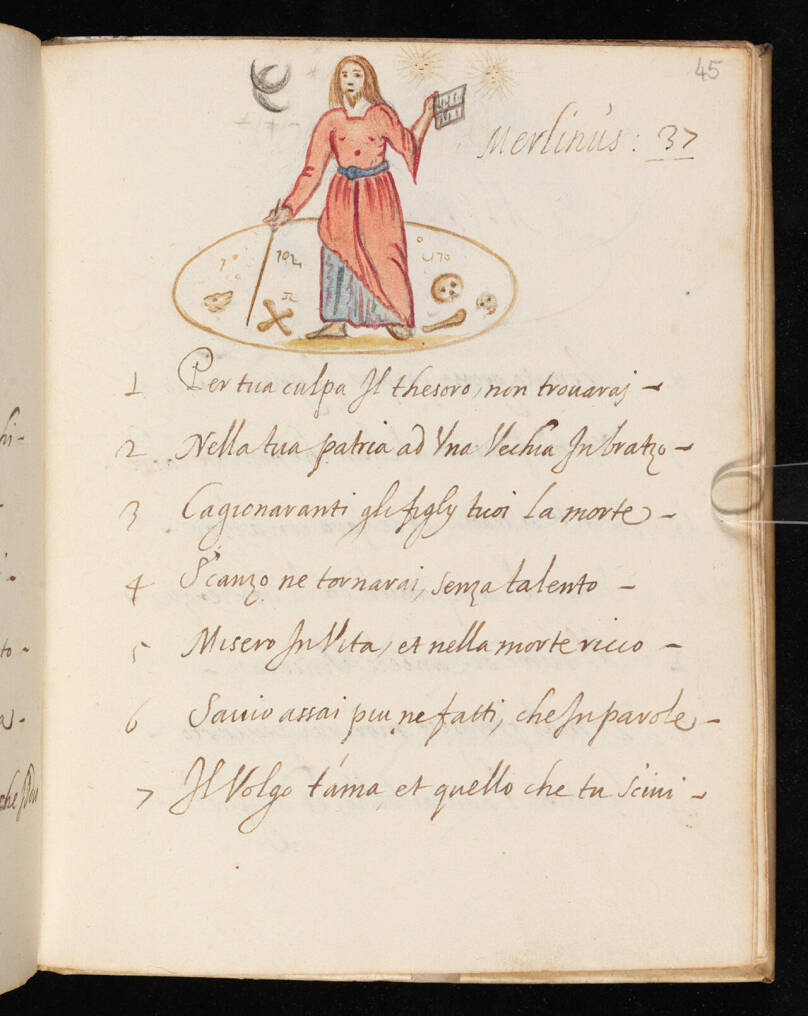 45
Merlinus: 37
1 Per tua culpa Il thesoro, non trouaraj -
2 Nella tua patria ad Vna Vechia In bratzo -
3 Cagionaranti gli figly tuoi La morte -
4 Scanzo ne tornarai, senza talento -
5 Misero In Vita, et nella morte ricco -
6 Sauio assai piu ne fatti, che In parole -
7 Il Volgo t'ama, et quello che tu Scriui -